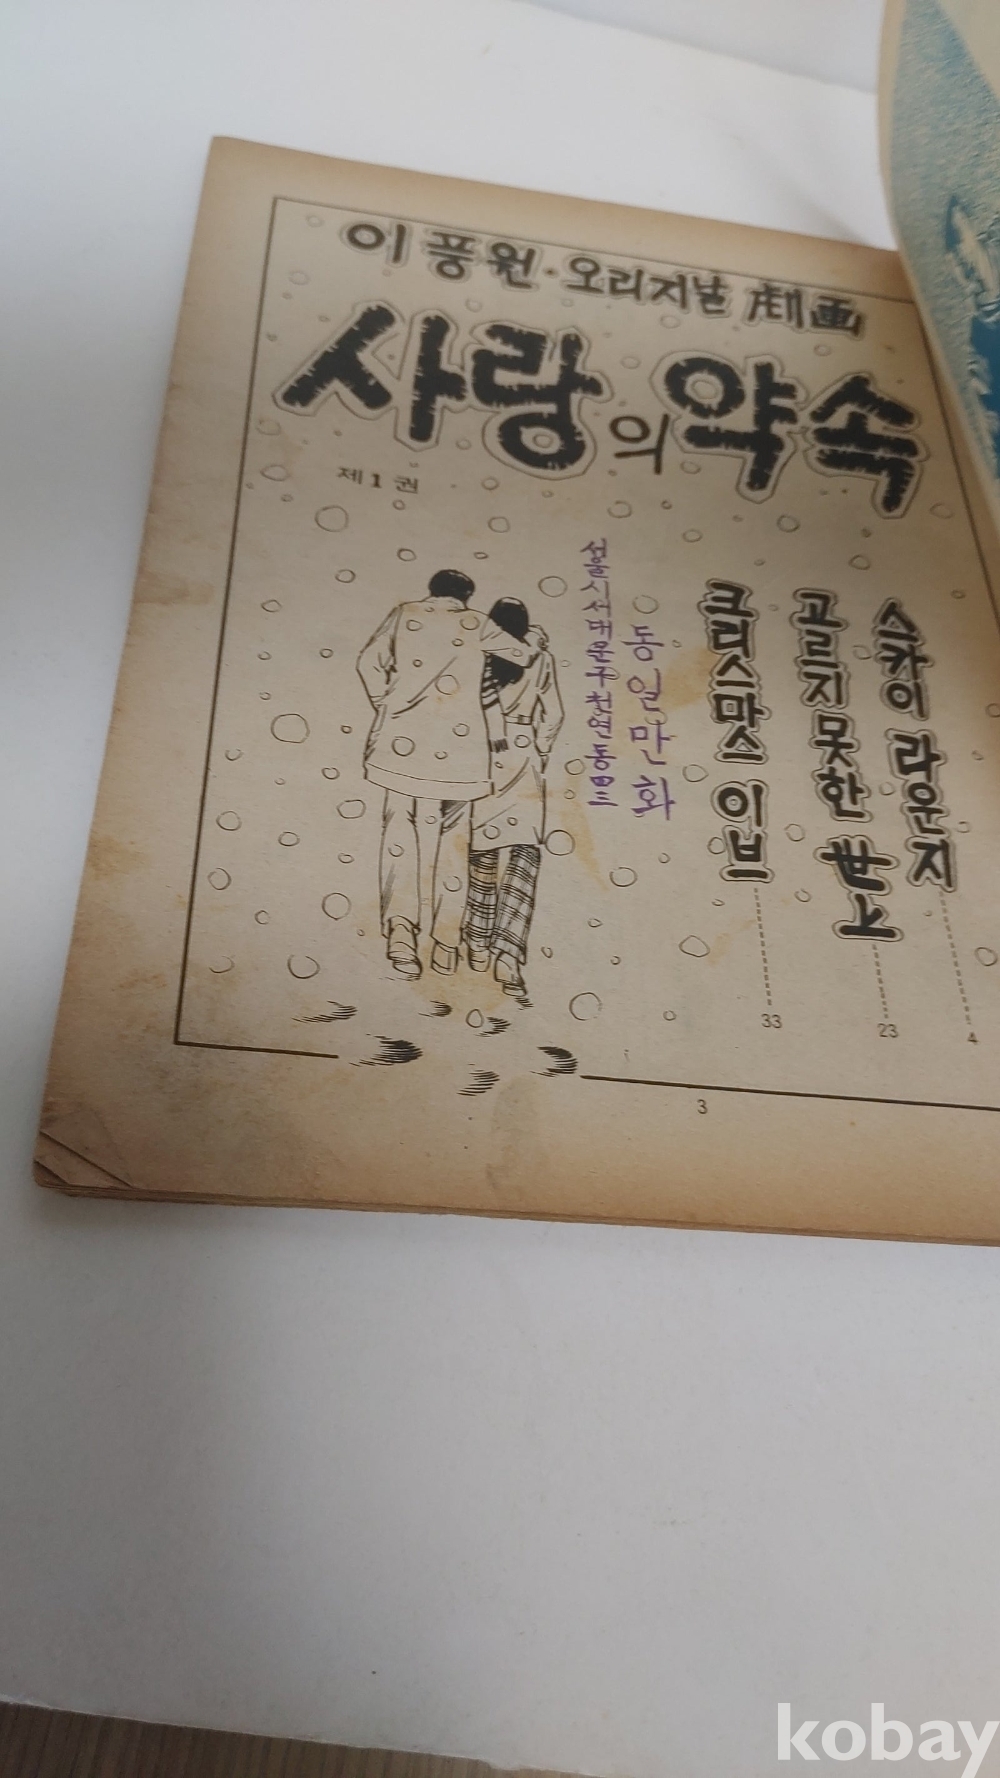 이 풍원·오리지날 劇画
사랑의 약속
제1권
스카이 라운지 4
고르지못한 世上 23
크리스마스 이브 33
동일만화
서울시서대문구천연동
3
kobay